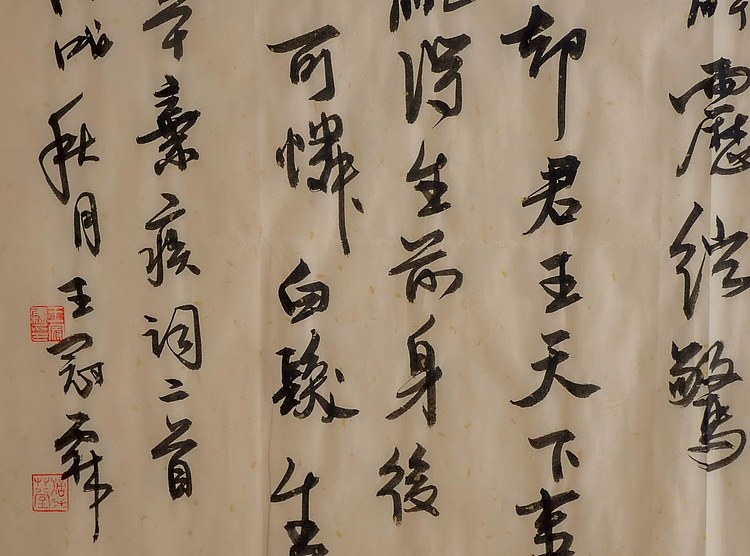 靂絃驚
却君王天下事
贏得生前身後
可憐白髮生
辛棄疾詞二首
戌秋月王冠霖